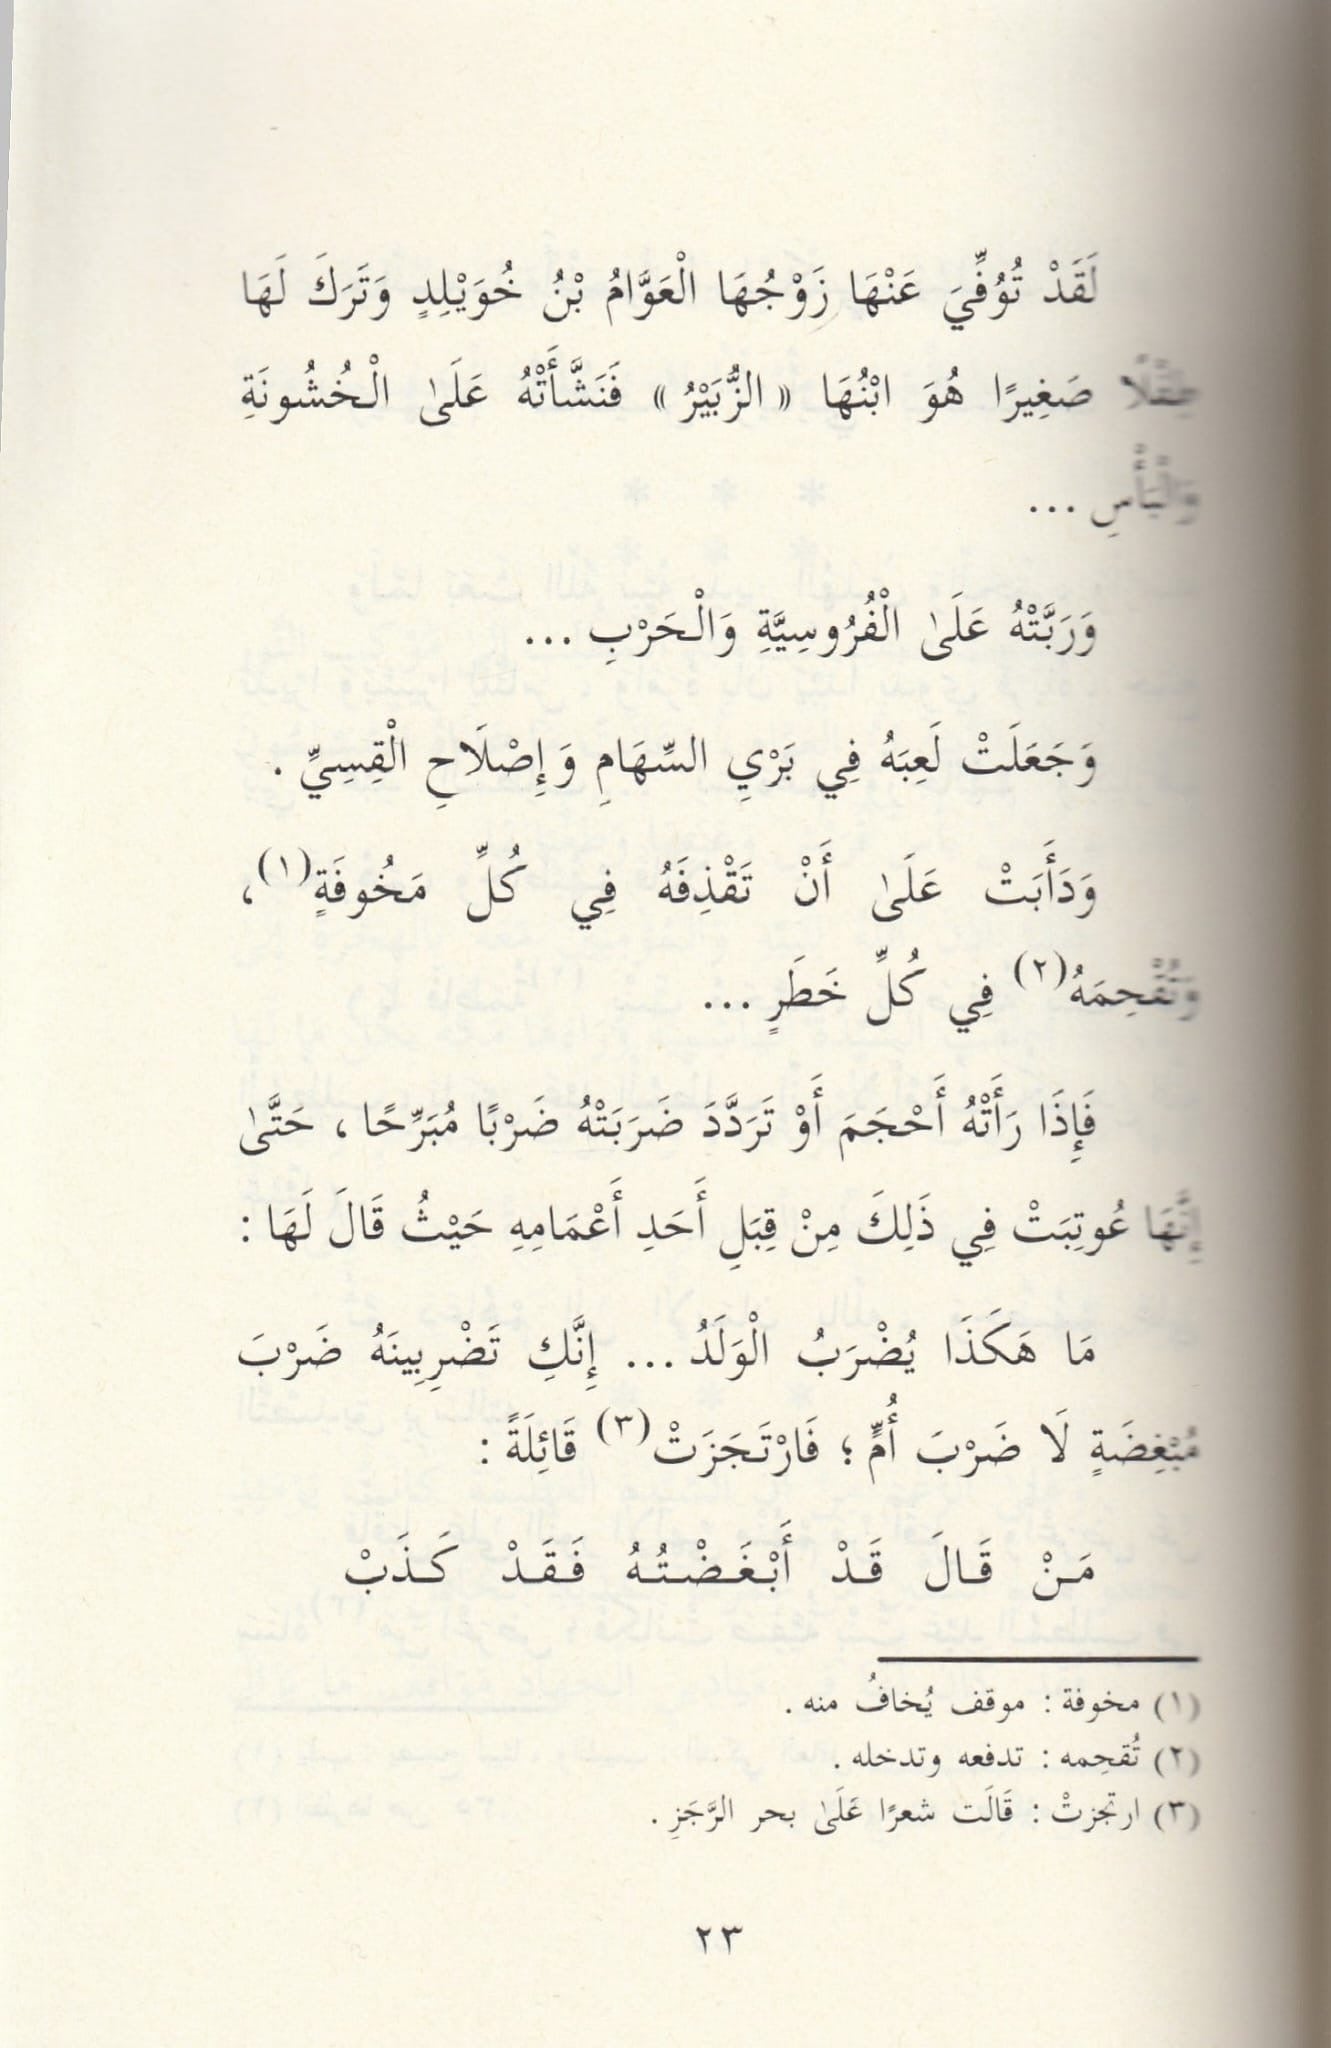 لَقَدْ تُوُفِّيَ عَنْهَا زَوْجُهَا الْعَوَّامُ بْنُ خُوَيْلِدٍ وَتَرَكَ لَهَا
طِفْلًا صَغِيرًا هُوَ ابْنُهَا « الزُّبَيْرُ » فَنَشَّأَتْهُ عَلَىٰ الْخُشُونَةِ
وَالْبَأْسِ ...
وَرَبَّتْهُ عَلَىٰ الْفُرُوسِيَّةِ وَالْحَرْبِ ...
وَجَعَلَتْ لَعِبَهُ فِي بَرْيِ السِّهَامِ وَإِصْلَاحِ الْقِسِيِّ .
وَدَأَبَتْ عَلَىٰ أَنْ تَقْذِفَهُ فِي كُلِّ مَخُوفَةٍ(١)،
وَتُقْحِمَهُ(٢) فِي كُلِّ خَطَرٍ ...
فَإِذَا رَأَتْهُ أَحْجَمَ أَوْ تَرَدَّدَ ضَرَبَتْهُ ضَرْبًا مُبَرِّحًا ، حَتَّىٰ
إِنَّهَا عُوتِبَتْ فِي ذَلِكَ مِنْ قِبَلِ أَحَدِ أَعْمَامِهِ حَيْثُ قَالَ لَهَا :
مَا هَكَذَا يُضْرَبُ الْوَلَدُ ... إِنَّكِ تَضْرِبِينَهُ ضَرْبَ
مُبْغِضَةٍ لَا ضَرْبَ أُمٍّ ؛ فَارْتَجَزَتْ(٣) قَائِلَةً :
مَنْ قَالَ قَدْ أَبْغَضْتُهُ فَقَدْ كَذَبْ
(١) مخوفة : موقف يُخافُ منه .
(٢) تُقحِمه : تدفعه وتدخله .
(٣) ارتجزتْ : قَالَت شعرًا عَلَىٰ بحر الرَّجَزِ .
٢٣